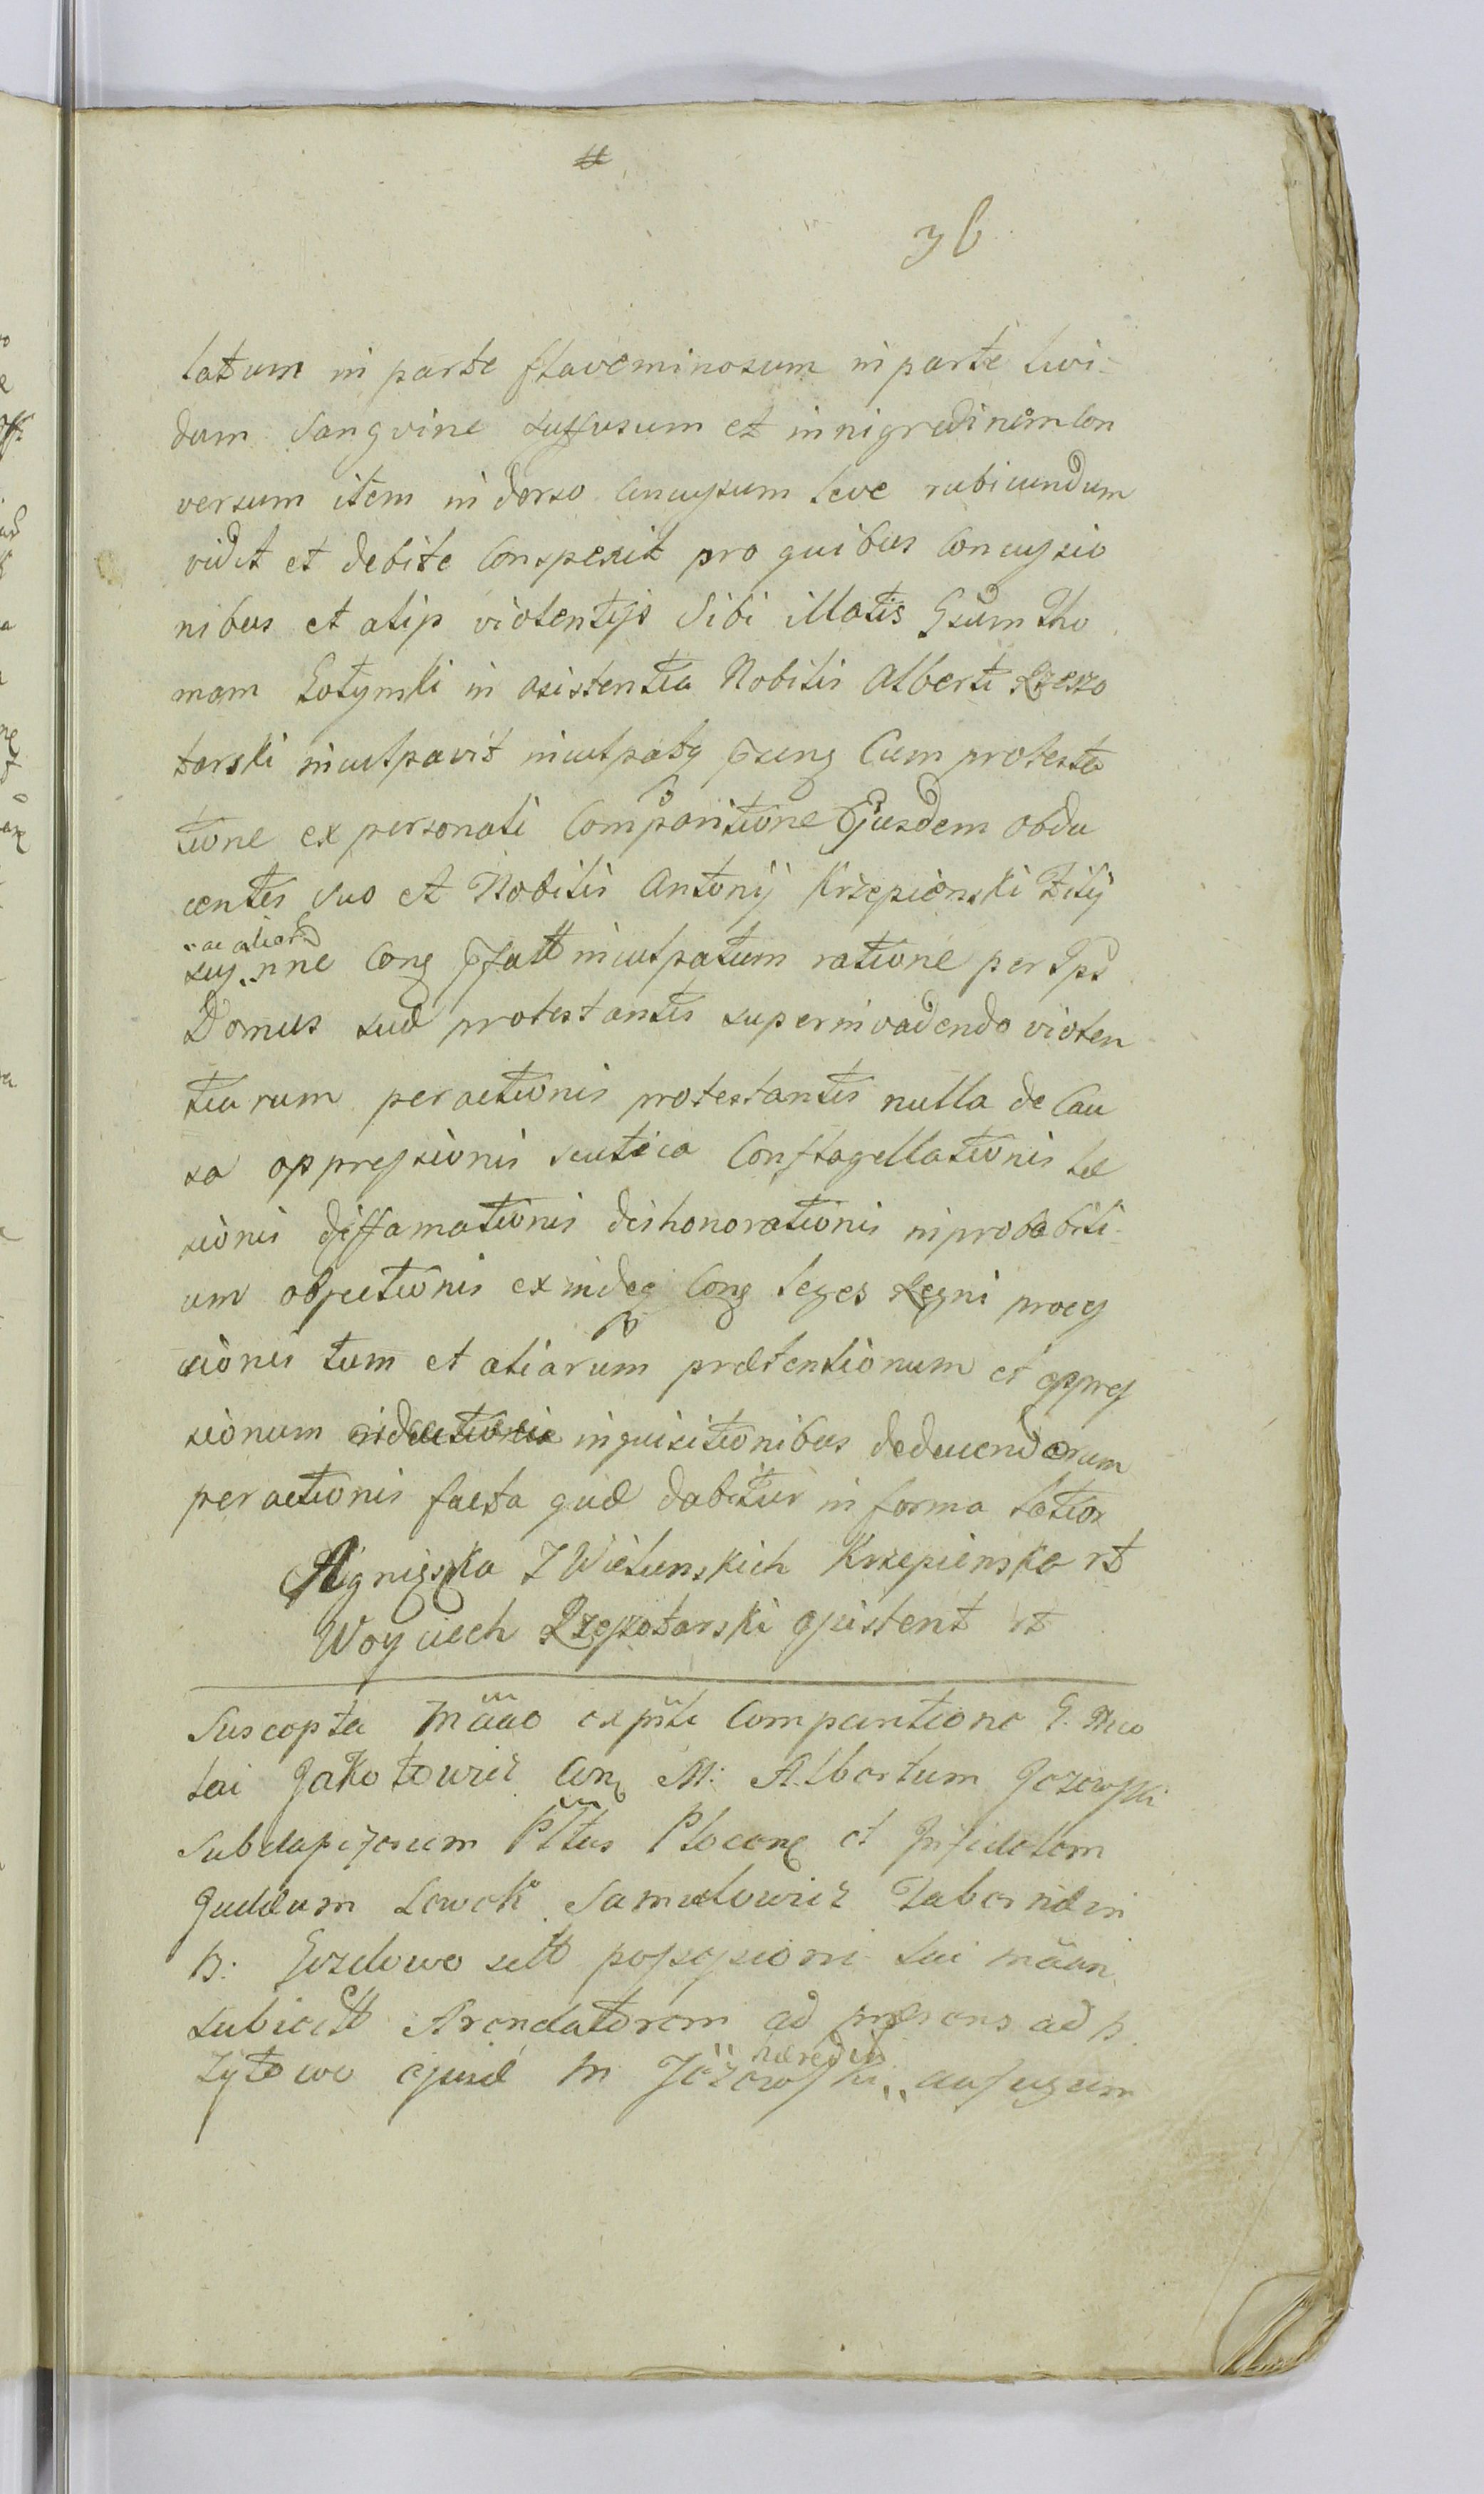 36
latum in parte flaveminosum in parte livi-
dum Sangvine suffusum et in nigredinem Con
versum item in dorso Concussum leve rubicundum
vidit et debite Conspexit pro quibus Concussio
nibus et alijs violentijs Sibi illatis Gsum Tho
mam Lotynski in asistentia Nobilis Alberti Rzeszo
tarski inculpavit Cum protesta
tione ex personali Comparitione Ejusdem obdu
centis suo et Nobilis Antonij Krzepienski Filij
ac aliar
sui nne Cong inculpatum ratione per Ips
Domus suæ protestantis superinvadendo violen
tiarum peractionis protestantis nulla de Cau
sa oppressionis scutica Conflagellationis læ
sionis diffamationis dishonorationis inprobabili-
um objectionis exindeq Cong leges Regni
sionis tum et aliarum prætentionum et oppres
sionum inquisitionibus deducendorum
peractionis facta quæ dabitur in forma latiori
Agnieszka Z Wielunskich Krzepienska rt
Woyciech Rzeszotarski assistent rt
Suscepta Comparitione G. Nico
lai Jakotowicz Con M: Albertum Jozowski
Subdapiferum Pttus Plocen et Infidelem
Judæum Lewek Samulowicz Tabernæ in
B: Gozdowo possessioni sui
subiectt Arendatorem ad præsens ad B.
hæredit
Zytowo M Jozowski aufugam